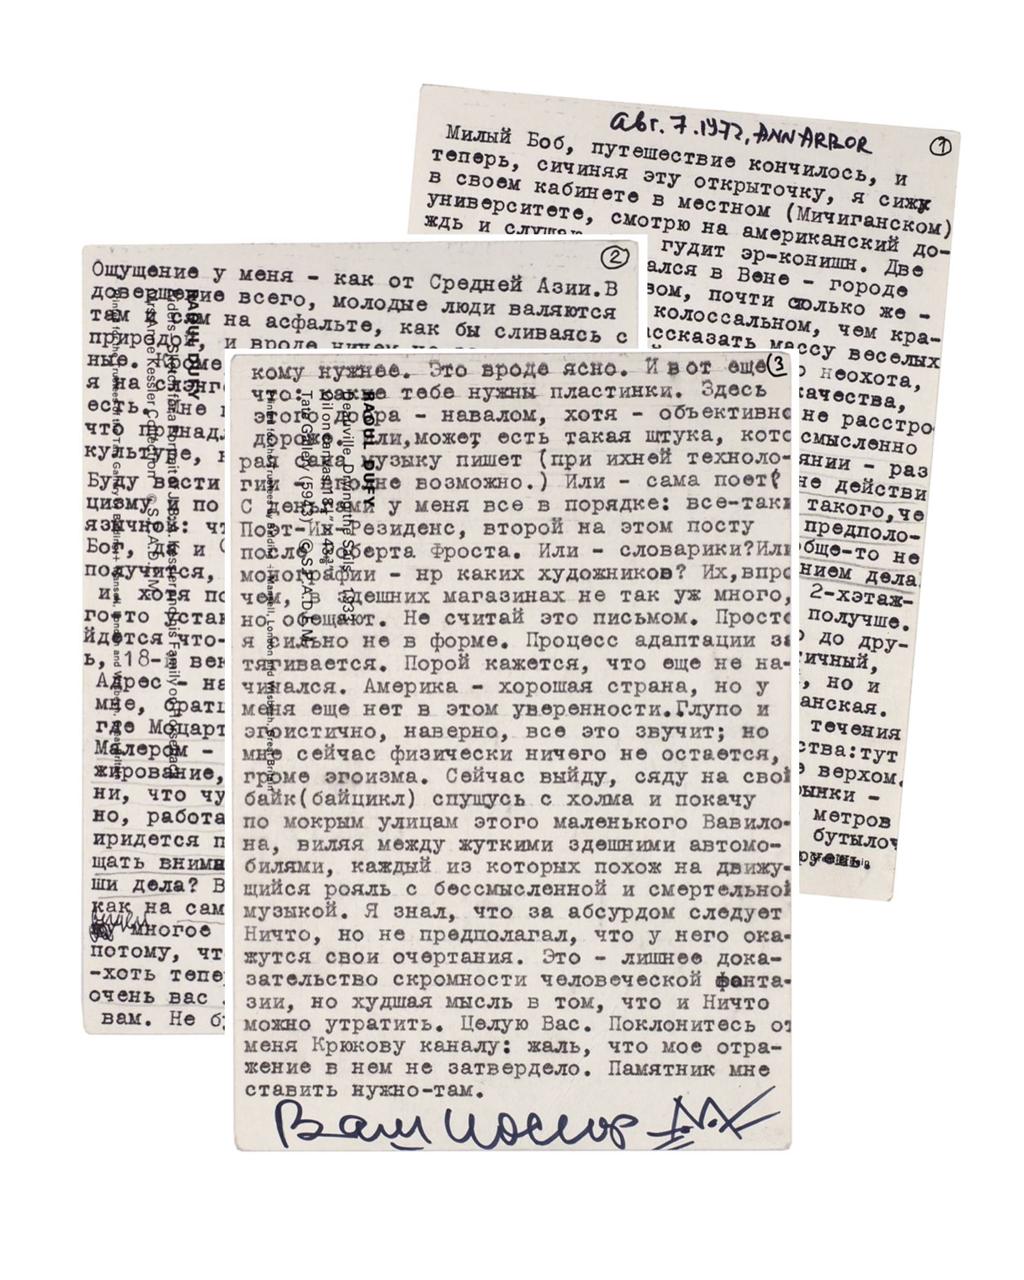 Авг. 7. 1972, ANN ARBOR
1
Милый Боб, путешествие кончилось, и
теперь, сичиняя эту открыточку, я сижу
в своем кабинете в местном (Мичиганском)
университете, смотрю на американский до-
ждь и слушаю
гудит эр-конишн. Две
ался в Вене - городе
вом, почти столько же -
колоссальном, чем кра-
ссказать массу веселых
неохота,
качества,
не расстро
смысленно
янии - раз
не действи
такого,че
предполо-
обще-то не
нием дела
2-хэтаж-
получше.
до дру-
ичный,
, но и
анская.
течения
ства:тут
верхом.
ынки -
метров
бутылоч
2
Ощущение у меня - как от Средней Азии.В
довершение всего, молодые люди валяются
там и сям на асфальте, как бы сливаясь с
природой, и вроде ничем не
ные. Кроме
я на сленг
есть. Мне
что принадл
культуре,
Буду вести
цизму и по
язычной: чт
Бог, да и
получится,
и хотя по
го-то устан
йдется что-
ь, 18-й век
Адрес - на
мне, братц
где Моцарт
Малером -
жирование,
ни, что чу
но, работа
иридется п
щать внима
ши дела? В
как на сам
многое
потому, чт
-хоть тепе
очень вас
вам. Не б
RAOUL DUFY
3
кому нужнее. Это вроде ясно. И вот еще
что: какие тебе нужны пластинки. Здесь
этого добра - навалом, хотя - объективно
дороже. Или,может есть такая штука, кото
рая сама музыку пишет (при ихней техноло-
гии вполне возможно.) Или - сама поет?
С деньгами у меня все в порядке: все-таки
Поэт-Ин-Резиденс, второй на этом посту
после Роберта Фроста. Или - словарики?Или
монографии - нр каких художников? Их,впро
чем, в здешних магазинах не так уж много,
но обещают. Не считай это письмом. Просто
я сильно не в форме. Процесс адаптации за
тягивается. Порой кажется, что еще не на-
чинался. Америка - хорошая страна, но у
меня еще нет в этом уверенности.Глупо и
эгоистично, наверно, все это звучит; но
мне сейчас физически ничего не остается,
громе эгоизма. Сейчас выйду, сяду на свой
байк(байцикл) спущусь с холма и покачу
по мокрым улицам этого маленького Вавило-
на, виляя между жуткими здешними автомо-
билями, каждый из которых похож на движу-
щийся рояль с бессмысленной и смертельной
музыкой. Я знал, что за абсурдом следует
Ничто, но не предполагал, что у него ока-
жутся свои очертания. Это - лишнее дока-
зательство скромности человеческой фанта-
зии, но худшая мысль в том, что и Ничто
можно утратить. Целую Вас. Поклонитесь от
меня Крюкову каналу: жаль, что мое отра-
жение в нем не затвердело. Памятник мне
ставить нужно-там.
Ваш Иосиф
RAOUL DUFY
Deauville, Drying the Sails 1933
Oil on canvas
Tate Gallery